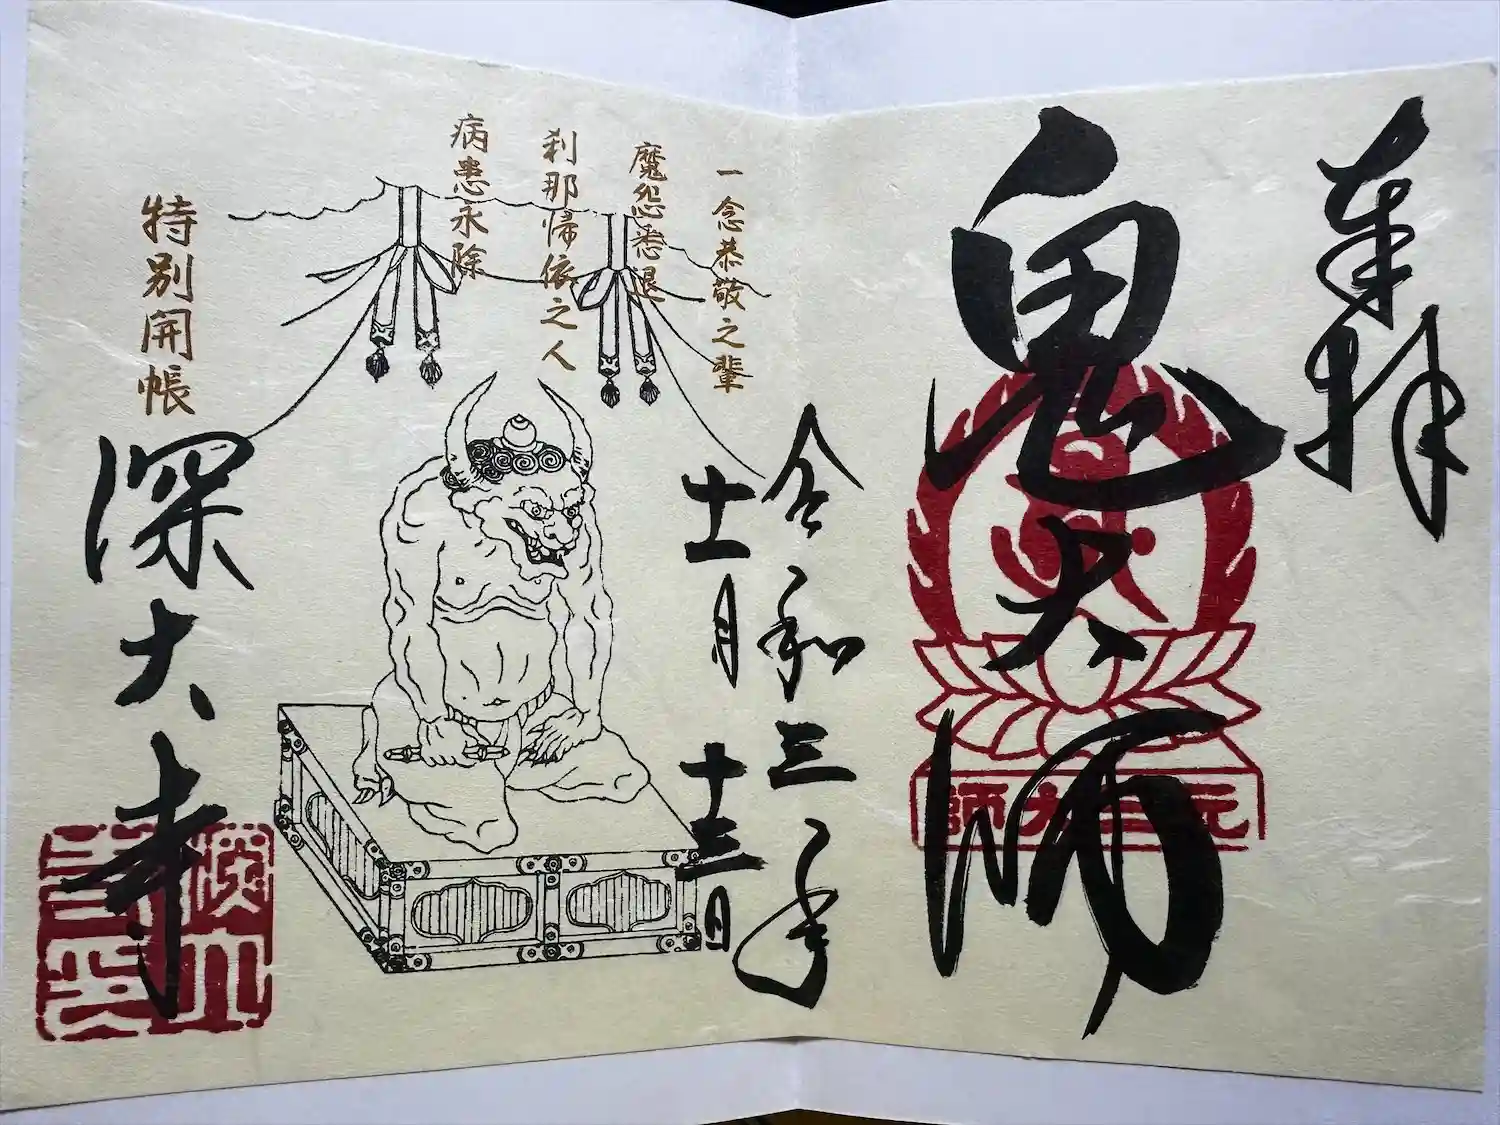 奉拝
鬼大師
元三大師
令和三年
十一月十三日
一念恭敬之輩
魔怨悉退
刹那帰依之人
病患永除
特別開帳
深大寺
深大寺印